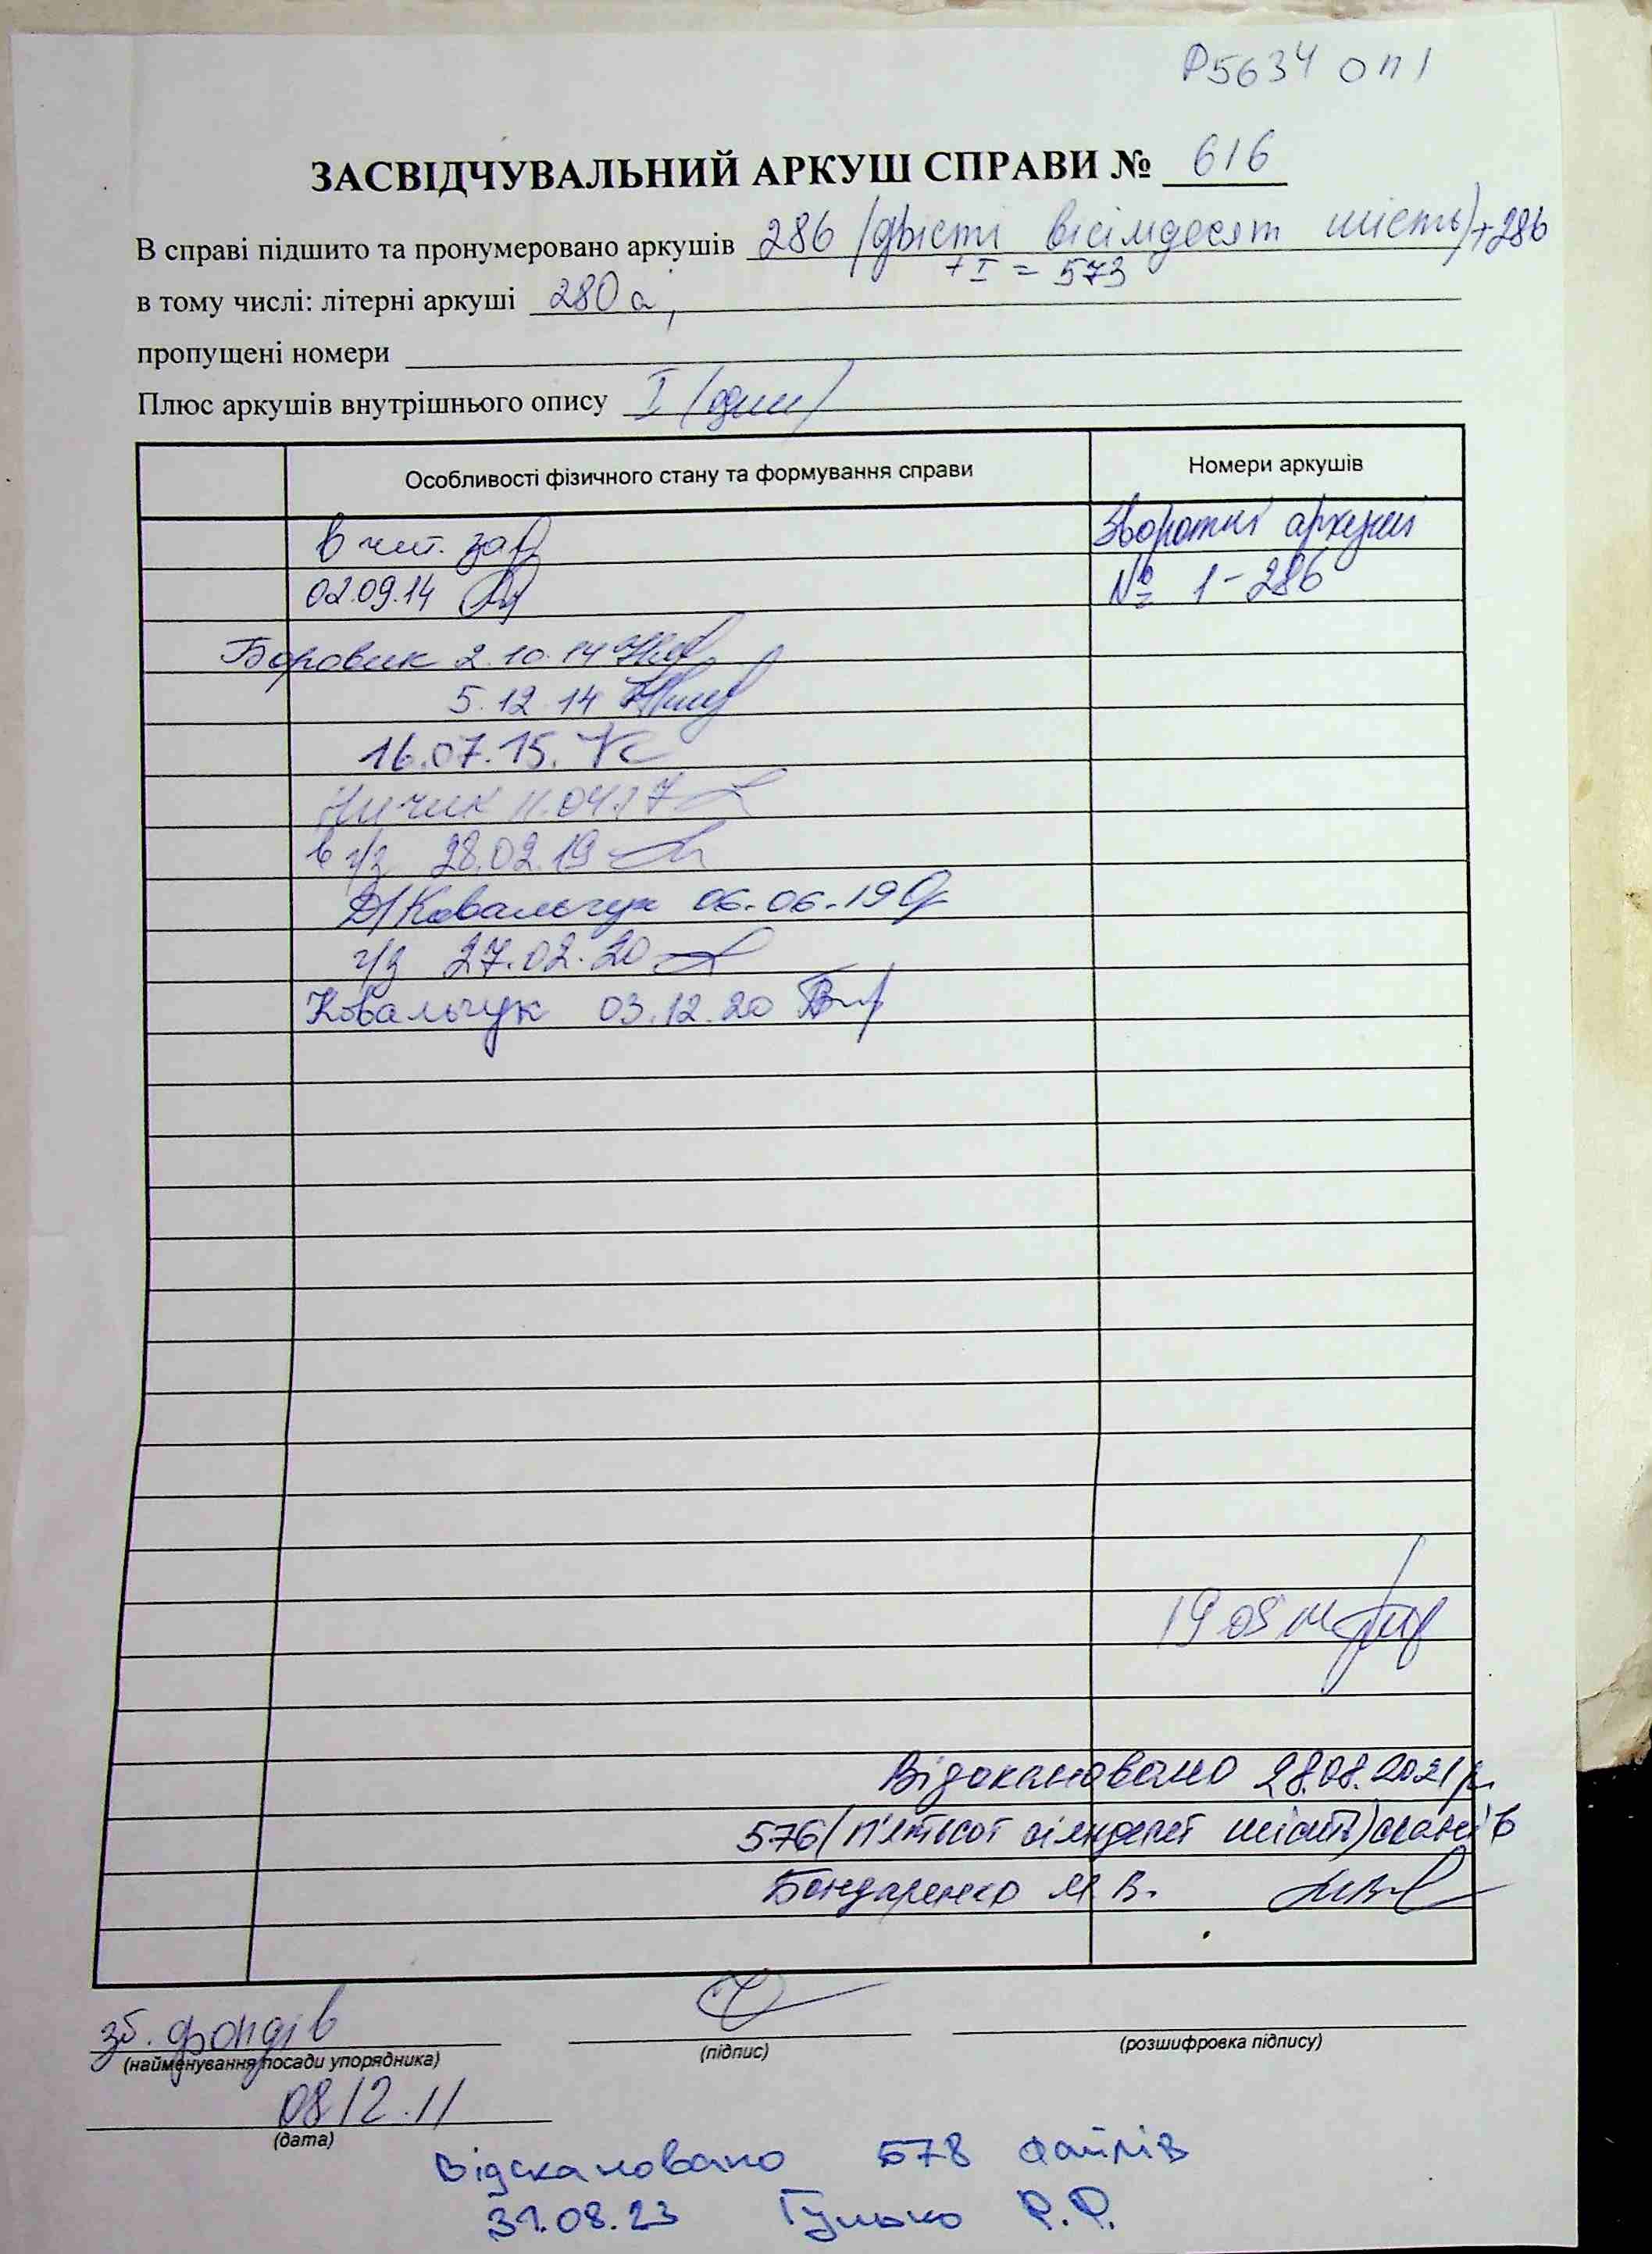 Р5634 оп 1
ЗАСВІДЧУВАЛЬНИЙ АРКУШ СПРАВИ № 616
В справі підшито та пронумеровано аркушів 286 (двісті вісімдесят шість) + 286
+ I = 573
в тому числі: літерні аркуші 280а,
пропущені номери
Плюс аркушів внутрішнього опису I (один)
Особливості фізичного стану та формування справи Номери аркушів
в чит. зал Зворотні аркуші
02.09.14 № 1-286
Боровик 2.10.14
5.12.14
16.07.15.
11.04.17
в ч/з 28.02.19
Ковальчук 06.06.19
ч/з 27.02.20
Ковальчук 03.12.20
19 08 14
Відскановано 28.08.2021р.
576 (п'ятсот сімдесят шість) сканів
Бондаренко М В.
зб. фондів
(найменування посади упорядника) (підпис) (розшифровка підпису)
08 12.11
(дата)
Відскановано 578 файлів
31.08.23 Гунько Р.Р.